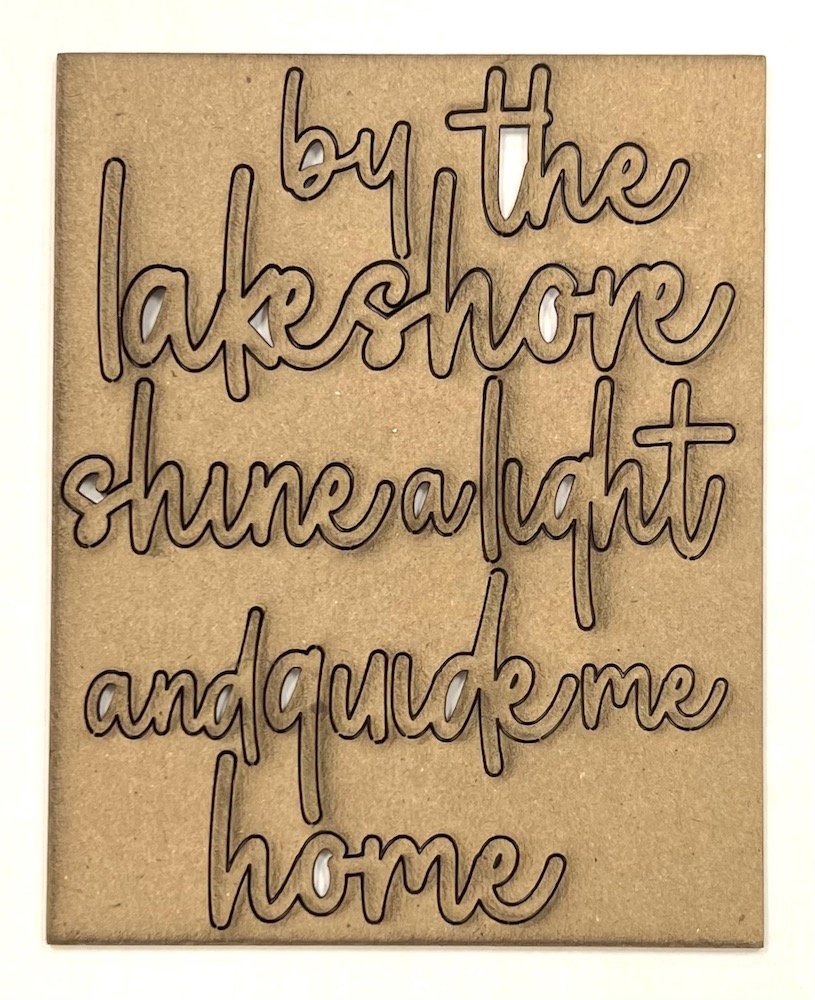 by the
lakeshore
shine a light
and guide me
home